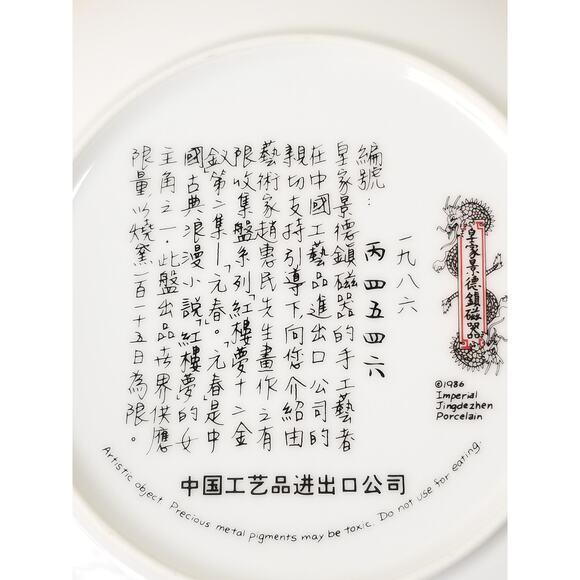 皇家景德鎮磁器
©1986
Imperial
Jingdezhen
Porcelain
一九八六
丙四五四六
編號：
皇家景德鎮磁器的手工藝者
在中國工藝品進出口公司的
親切支持引導下，向您介紹由
藝術家趙惠民先生畫作之有
限收集盤系列「紅樓夢十二金
釵」第二集—元春。「元春」是中
國古典浪漫小說「紅樓夢」的女
主角之一，此盤出品世界供應
限量以燒窯一百一十五日為限。
中国工艺品进出口公司
Artistic object. Precious metal pigments may be toxic. Do not use for eating.